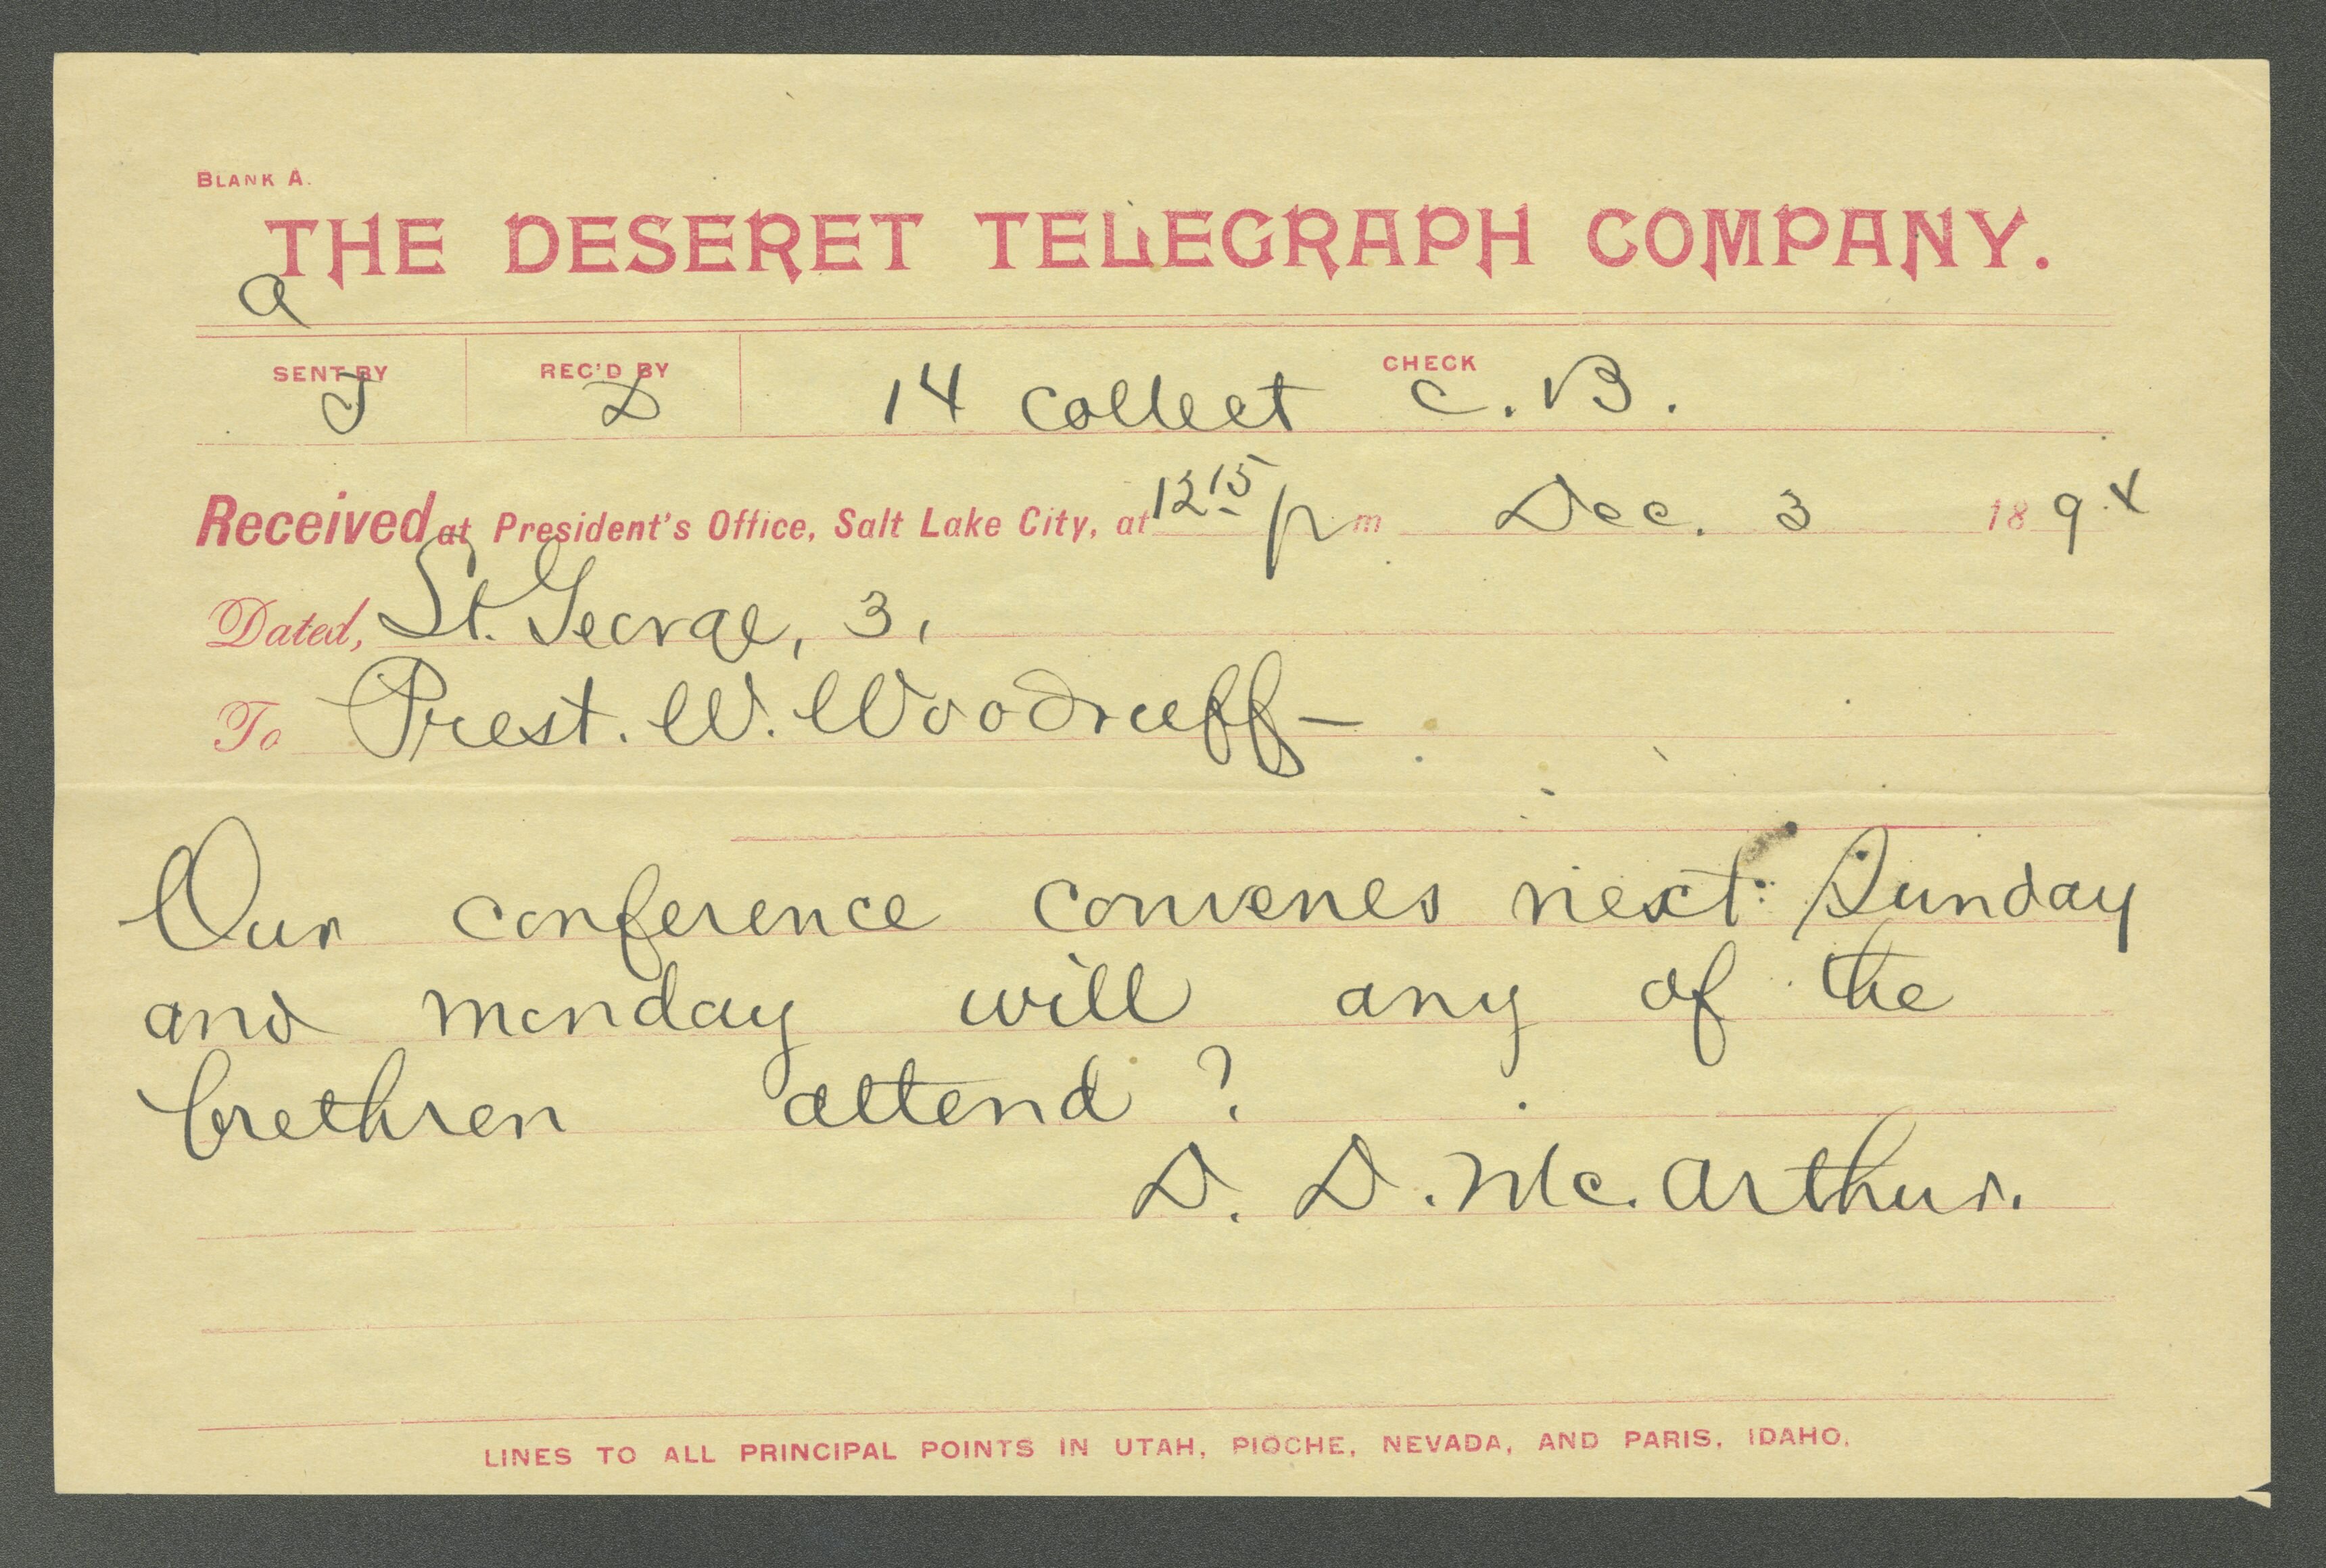 BLANK A.
THE DESERET TELEGRAPH COMPANY.
a
SENT BY REC'D BY CHECK
J D 14 Collect C. B.
Received at President's Office, Salt Lake City, at 12 15 p m Dec. 3 189 4
Dated, St. George, 3,
To Prest. W. Woodruff —
Our conference convenes next Sunday
and monday will any of the
brethren attend ?
D. D. Mc. Arthur.
LINES TO ALL PRINCIPAL POINTS IN UTAH, PIOCHE, NEVADA, AND PARIS, IDAHO.